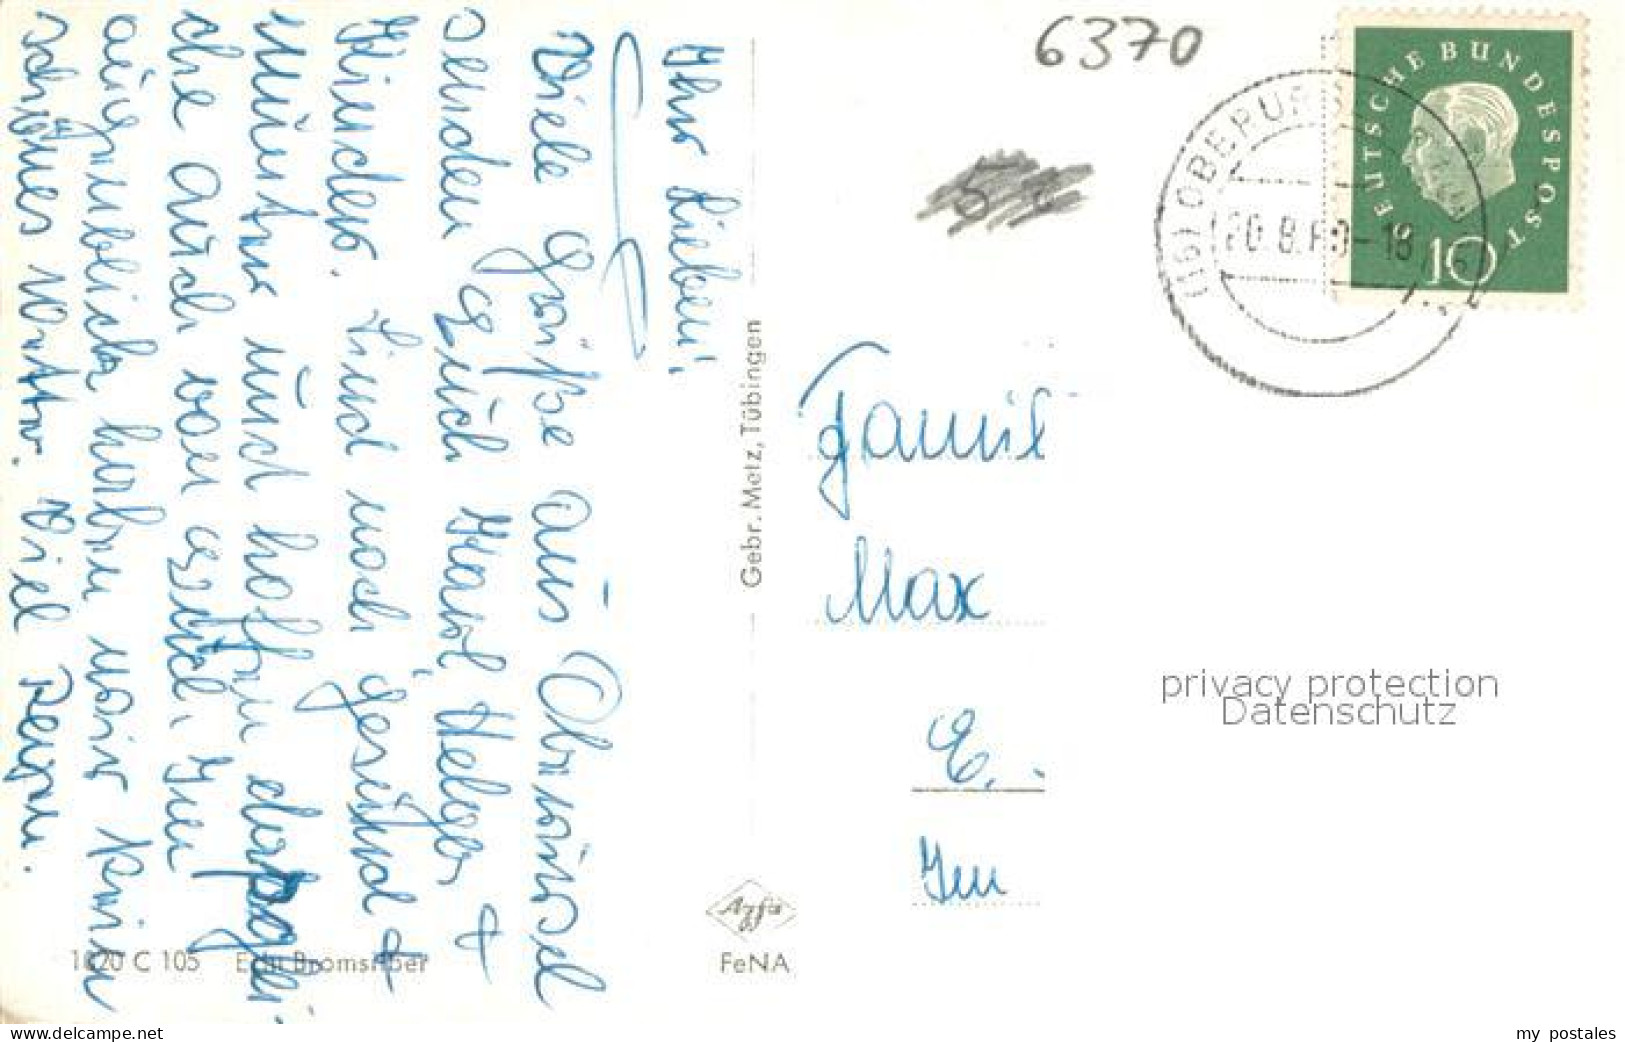 Ihr Lieben!
Viele Grüße aus Oberursel
senden Euch Karl, Helga +
Kinder. Sind noch gesund +
munter und hoffen dasselbe
auch von Euch. Im
augenblick haben wir kein
schönes Wetter. Viel Regen.
1820 C 105 Echt Bromsilber
Gebr. Metz, Tübingen
Agfa
FeNA
6370
DEUTSCHE BUNDESPOST
10
(16) OBERURSEL
20.8.60-18
Famil
Max
E.
Im
privacy protection
Datenschutz
www.delcampe.net
my postales